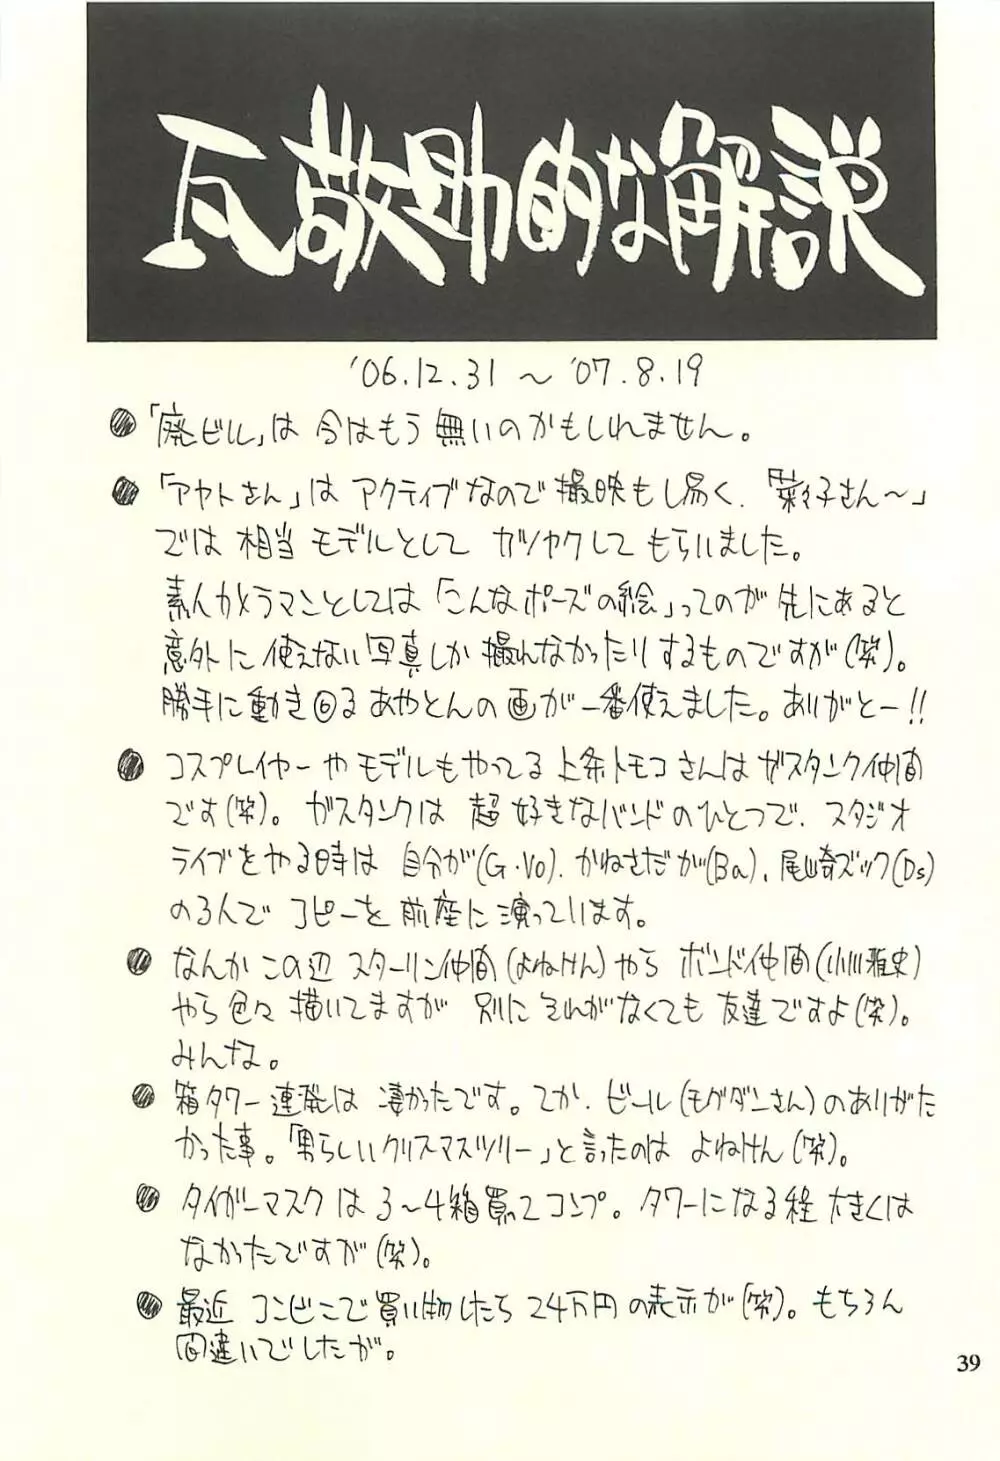 瓦敬助的な解説
'06.12.31 〜 '07.8.19
●「廃ビル」は 今はもう 無いのかもしれません。
●「アヤトさん」は アクティブなので 撮映もし易く、「菜々子さん〜」
では 相当 モデルとして カツヤクして もらいました。
素人カメラマンとしては「こんなポーズの絵」ってのが 先にあると
意外に 使えない 写真しか 撮れなかったりするものですが(笑)。
勝手に動き回る あやとんの 画が 一番使えました。ありがとー!!
● コスプレイヤーや モデルもやってる 上条トモコさんは ガスタンク仲間
です(笑)。ガスタンクは 超 好きなバンドのひとつで、スタジオ
ライブをやる時は 自分が(G・Vo)、かねさだが(Ba)、尾崎ズック(Ds)
のろんで コピーを 前座に 演っています。
● なんか この辺 スターリン仲間(よねけん)やら ボンド仲間(小川雅史)
やら 色々 描いてますが 別に それがなくても 友達ですよ(笑)。
みんな。
● 箱タワー連発は 凄かったです。てか、ビール(モグダンさん)のありがた
かった事。「男らしいクリスマスツリー」と言ったのは よねけん(笑)。
● タイガーマスクは 3〜4箱買って コンプ。タワーになる程 大きくは
なかったですが(笑)。
● 最近 コンビニで 買い物したら 24万円の表示が(笑)。もちろん
間違いでしたが。
39